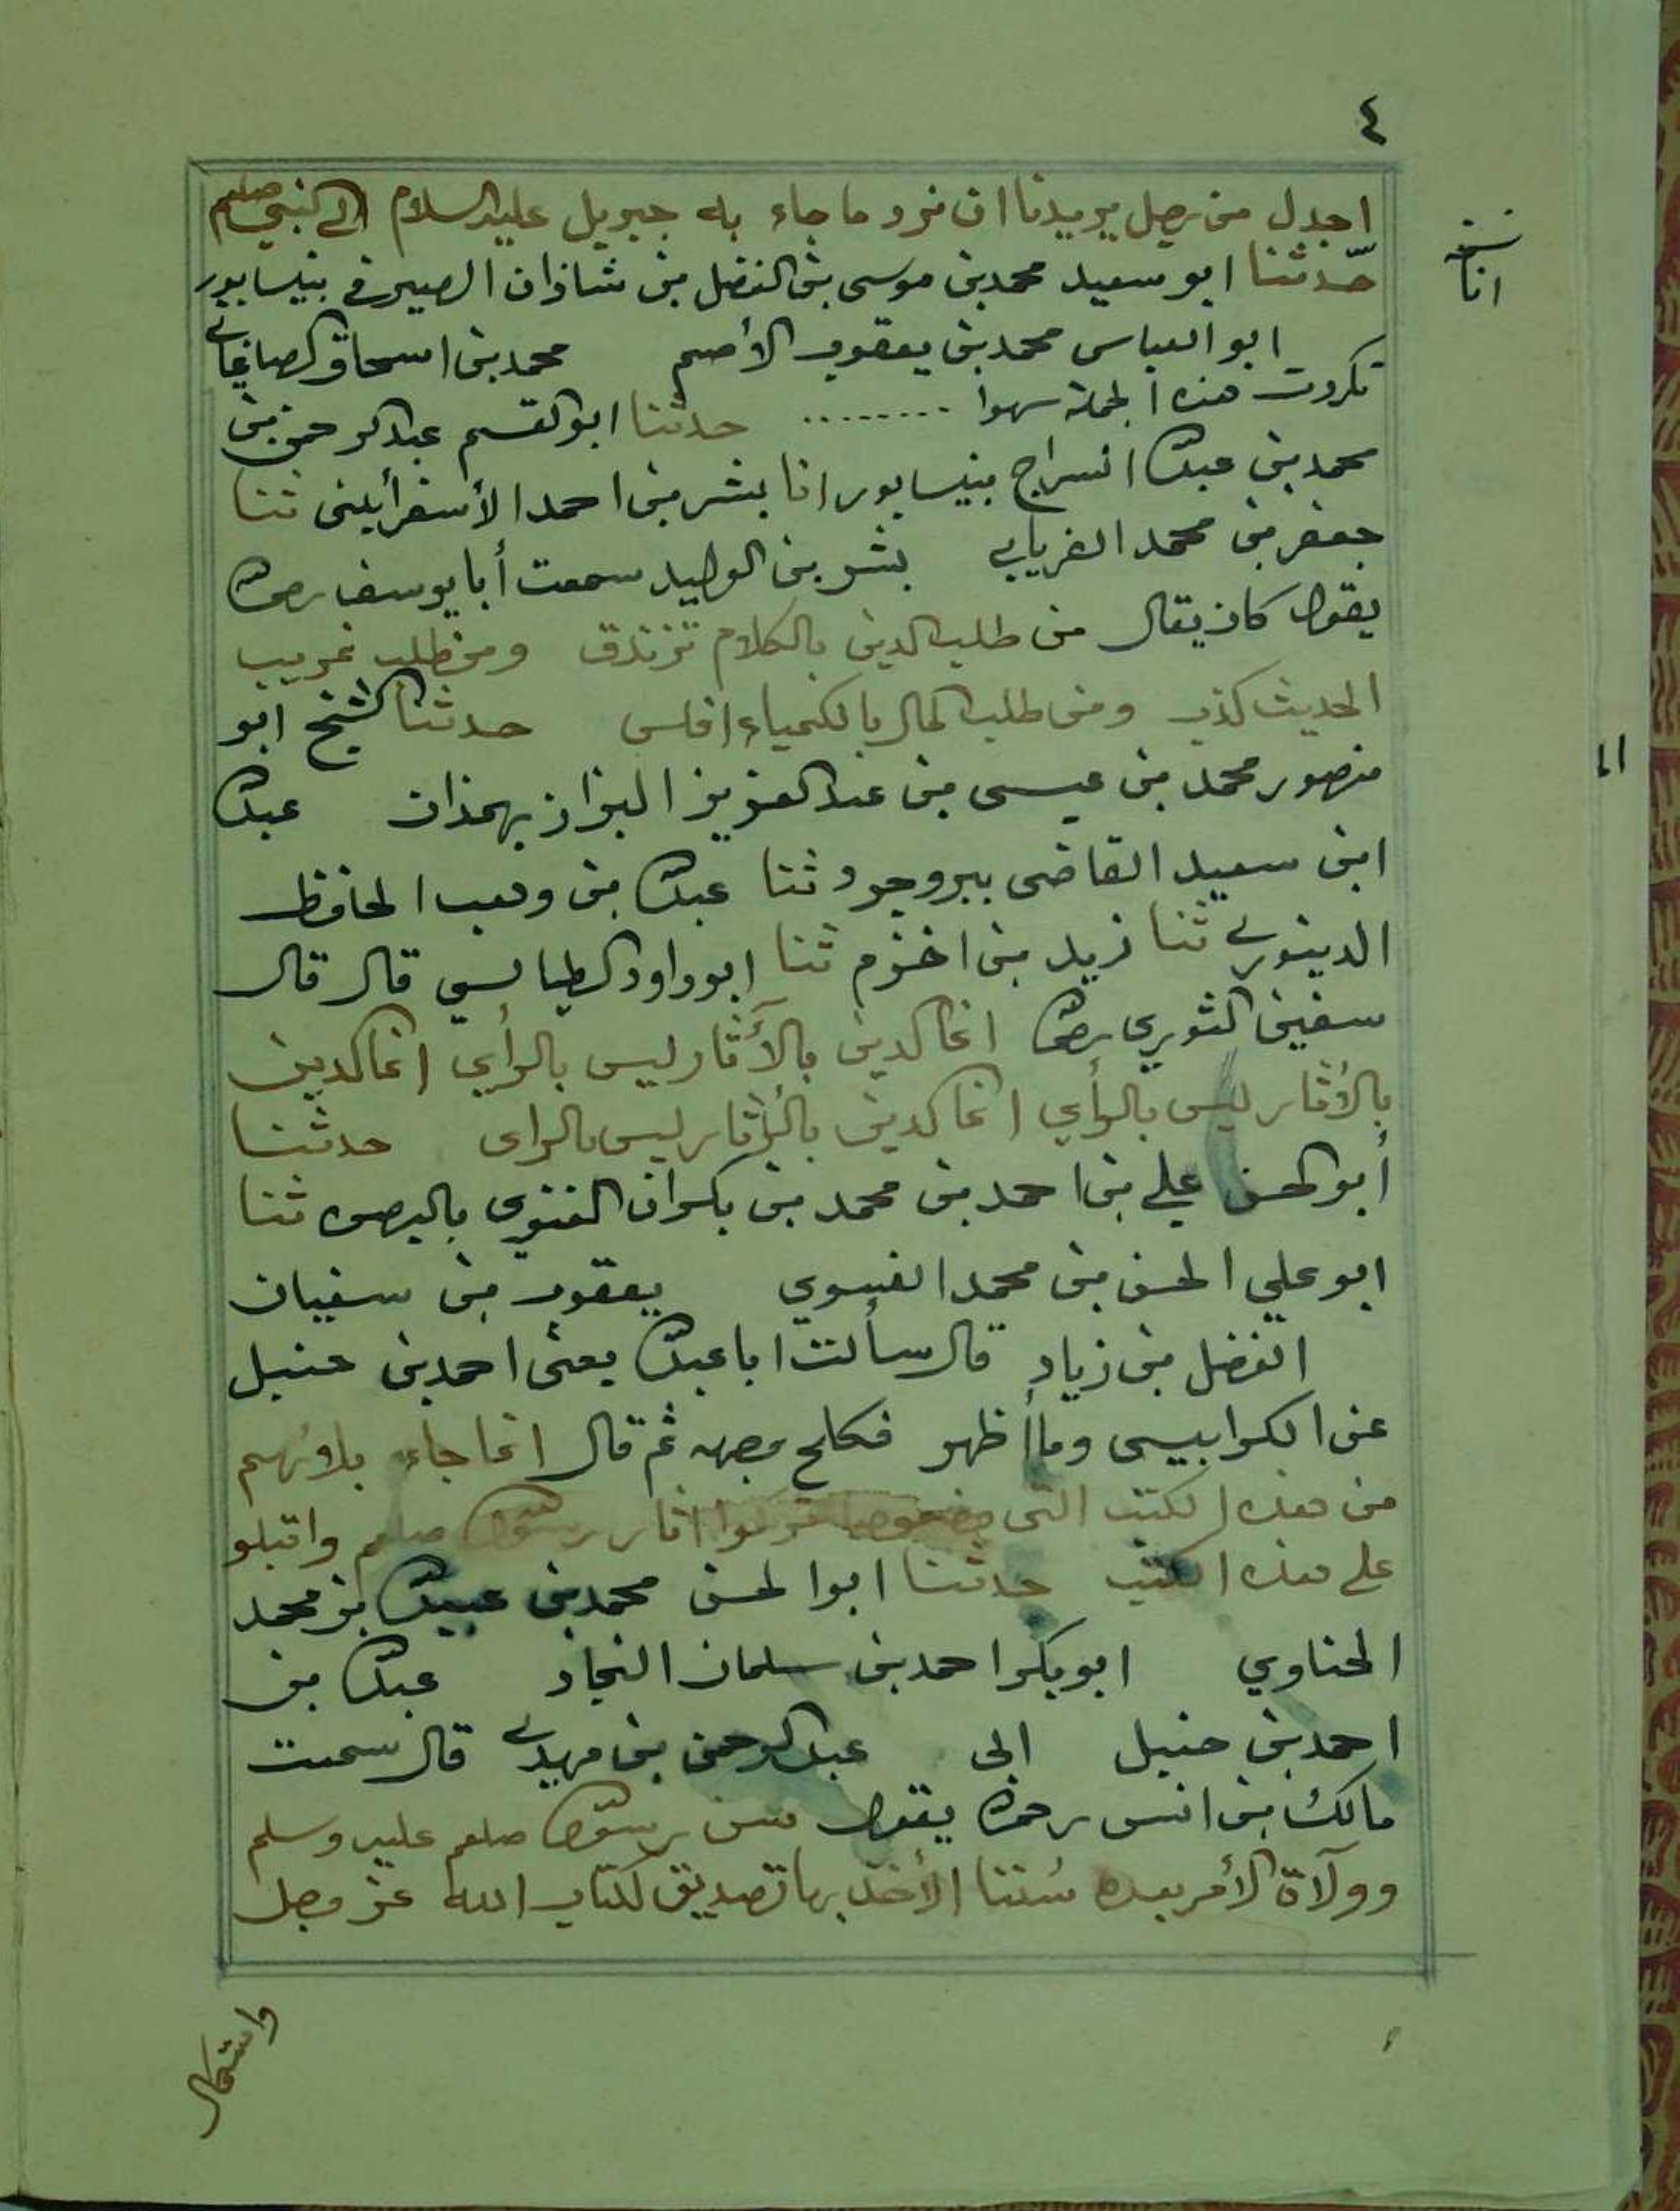 ٤
اجدل من رجل يريدنا ان نرد ما جاء به جبريل عليه السلام الى النبي صلعم
حدثنا ابو سعيد محمد بن موسى بن الفضل بن شاذان الصيرفي بنيسابور
نسخة
انا
ابو العباس محمد بن يعقوب الأصم محمد بن اسحاق الصاغاني
تكررت هذه الجملة سهوا ........ حدثنا ابو القسم عبد الرحمن بن
محمد بن عبد الله السراج بنيسابور انا بشر بن احمد الأسفرأيني ثنا
جعفر بن محمد الفريابي بشر بن الوليد سمعت أبا يوسف رحمه الله
يقول كان يقال من طلب الدين بالكلام تزندق ومن طلب غريب
الحديث كذب ومن طلب المال بالكيمياء افلس حدثنا الشيخ ابو
منصور محمد بن عيسى بن عبد العزيز البزاز بهمذان عبد الله
ابن سعيد القاضى ببروجرد ثنا عبد الله بن وهب الحافظ
الدينوري ثنا زيد بن اخزم ثنا ابو داود الطيالسي قال قال
سفين الثوري رحمه الله انما الدين بالآثار ليس بالرأي انما الدين
بالأثار ليس بالرأي انما الدين بالأثار ليس بالراى حدثنا
أبو الحسن علي بن احمد بن محمد بن بكران الفنوى بالبصره ثنا
ابو علي الحسن بن محمد الفسوي يعقوب بن سفيان
الفضل بن زياد قال سألت ابا عبد الله يعنى احمد بن حنبل
عن الكرابيسى وما أظهر فكلح وجهه ثم قال انما جاء بلاؤهم
من هذه الكتب التى وضعوها تركوا اثار رسول الله صلعم واقبلو
على هذه الكتب حدثنا ابو الحسن محمد بن عبيد الله بن محمد
الحناوي ابو بكر احمد بن سلمان النجاد عبد الله بن
احمد بن حنبل ابى عبد الرحمن بن مهدي قال سمعت
مالك بن انس رحمه الله يقول سن رسول الله صلعم عليه وسلم
وولآة الأمر بعده سُننا الأخذ بها تصديق لكتاب الله عز وجل
واستكمال